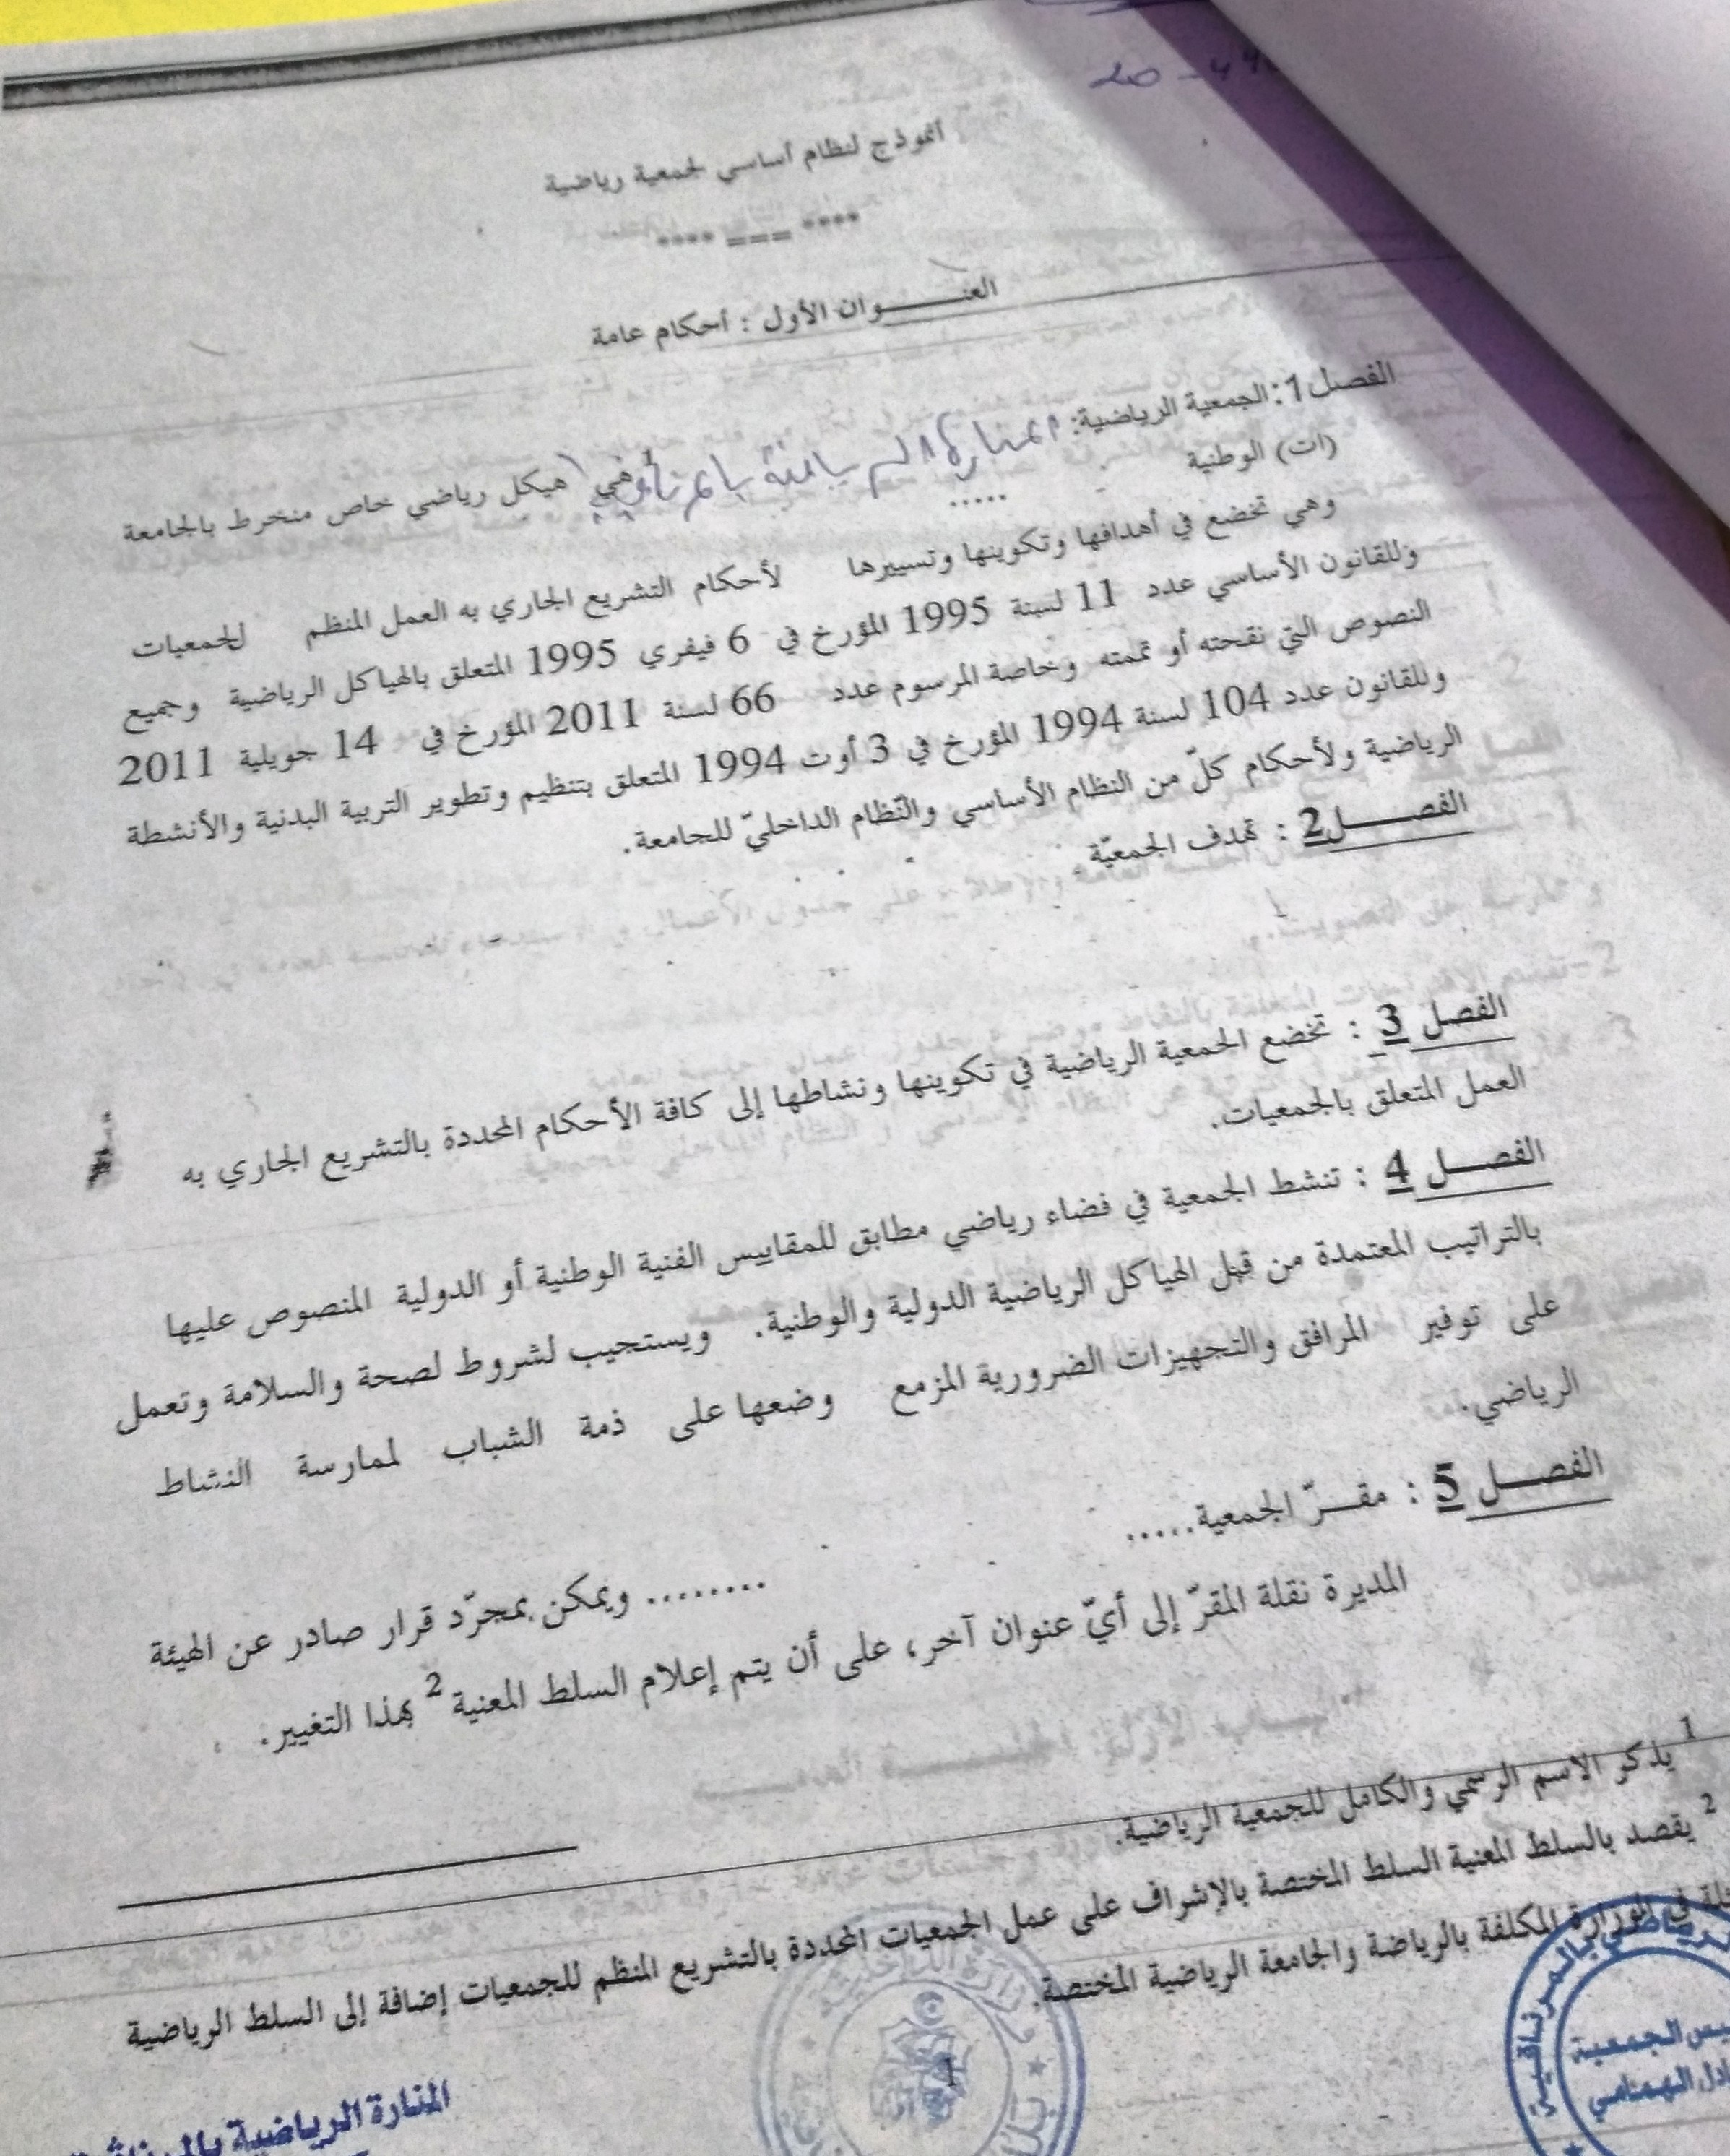 20-44
أنموذج لنظام أساسي لجمعية رياضية
**** === ****
العنـــــــوان الأول : أحكام عامة
الفصل1: الجمعية الرياضية: المنارة الرياضية بالمرناقية 1 هي هيكل رياضي خاص منخرط بالجامعة
(ات) الوطنية .....
وهي تخضع في أهدافها وتكوينها وتسييرها لأحكام التشريع الجاري به العمل المنظم للجمعيات
وللقانون الأساسي عدد 11 لسنة 1995 المؤرخ في 6 فيفري 1995 المتعلق بالهياكل الرياضية وجميع
النصوص التي نقحته أو تممته وخاصة المرسوم عدد 66 لسنة 2011 المؤرخ في 14 جويلية 2011
وللقانون عدد 104 لسنة 1994 المؤرخ في 3 أوت 1994 المتعلق بتنظيم وتطوير التربية البدنية والأنشطة
الرياضية ولأحكام كلّ من النظام الأساسي والنّظام الداخليّ للجامعة.
الفصـــــل2 : تهدف الجمعيّة
الفصل 3 : تخضع الجمعية الرياضية في تكوينها ونشاطها إلى كافة الأحكام المحددة بالتشريع الجاري به
العمل المتعلق بالجمعيات.
الفصـــل 4 : تنشط الجمعية في فضاء رياضي مطابق للمقاييس الفنية الوطنية أو الدولية المنصوص عليها
بالتراتيب المعتمدة من قبل الهياكل الرياضية الدولية والوطنية. ويستجيب لشروط لصحة والسلامة وتعمل
على توفير المرافق والتجهيزات الضرورية المزمع وضعها على ذمة الشباب لممارسة النشاط
الرياضي.
الفصـــل 5 : مقـــرّ الجمعية.....
........ ويمكن بمجرّد قرار صادر عن الهيئة
المديرة نقلة المقرّ إلى أيّ عنوان آخر، على أن يتم إعلام السلط المعنية 2 بهذا التغيير.
1 يذكر الاسم الرسمي والكامل للجمعية الرياضية.
2 يقصد بالسلط المعنية السلط المختصة بالإشراف على عمل الجمعيات المحددة بالتشريع المنظم للجمعيات إضافة إلى السلط الرياضية
في الوزارة المكلفة بالرياضة والجامعة الرياضية المختصة.
1
المنارة الرياضية
الجمعية